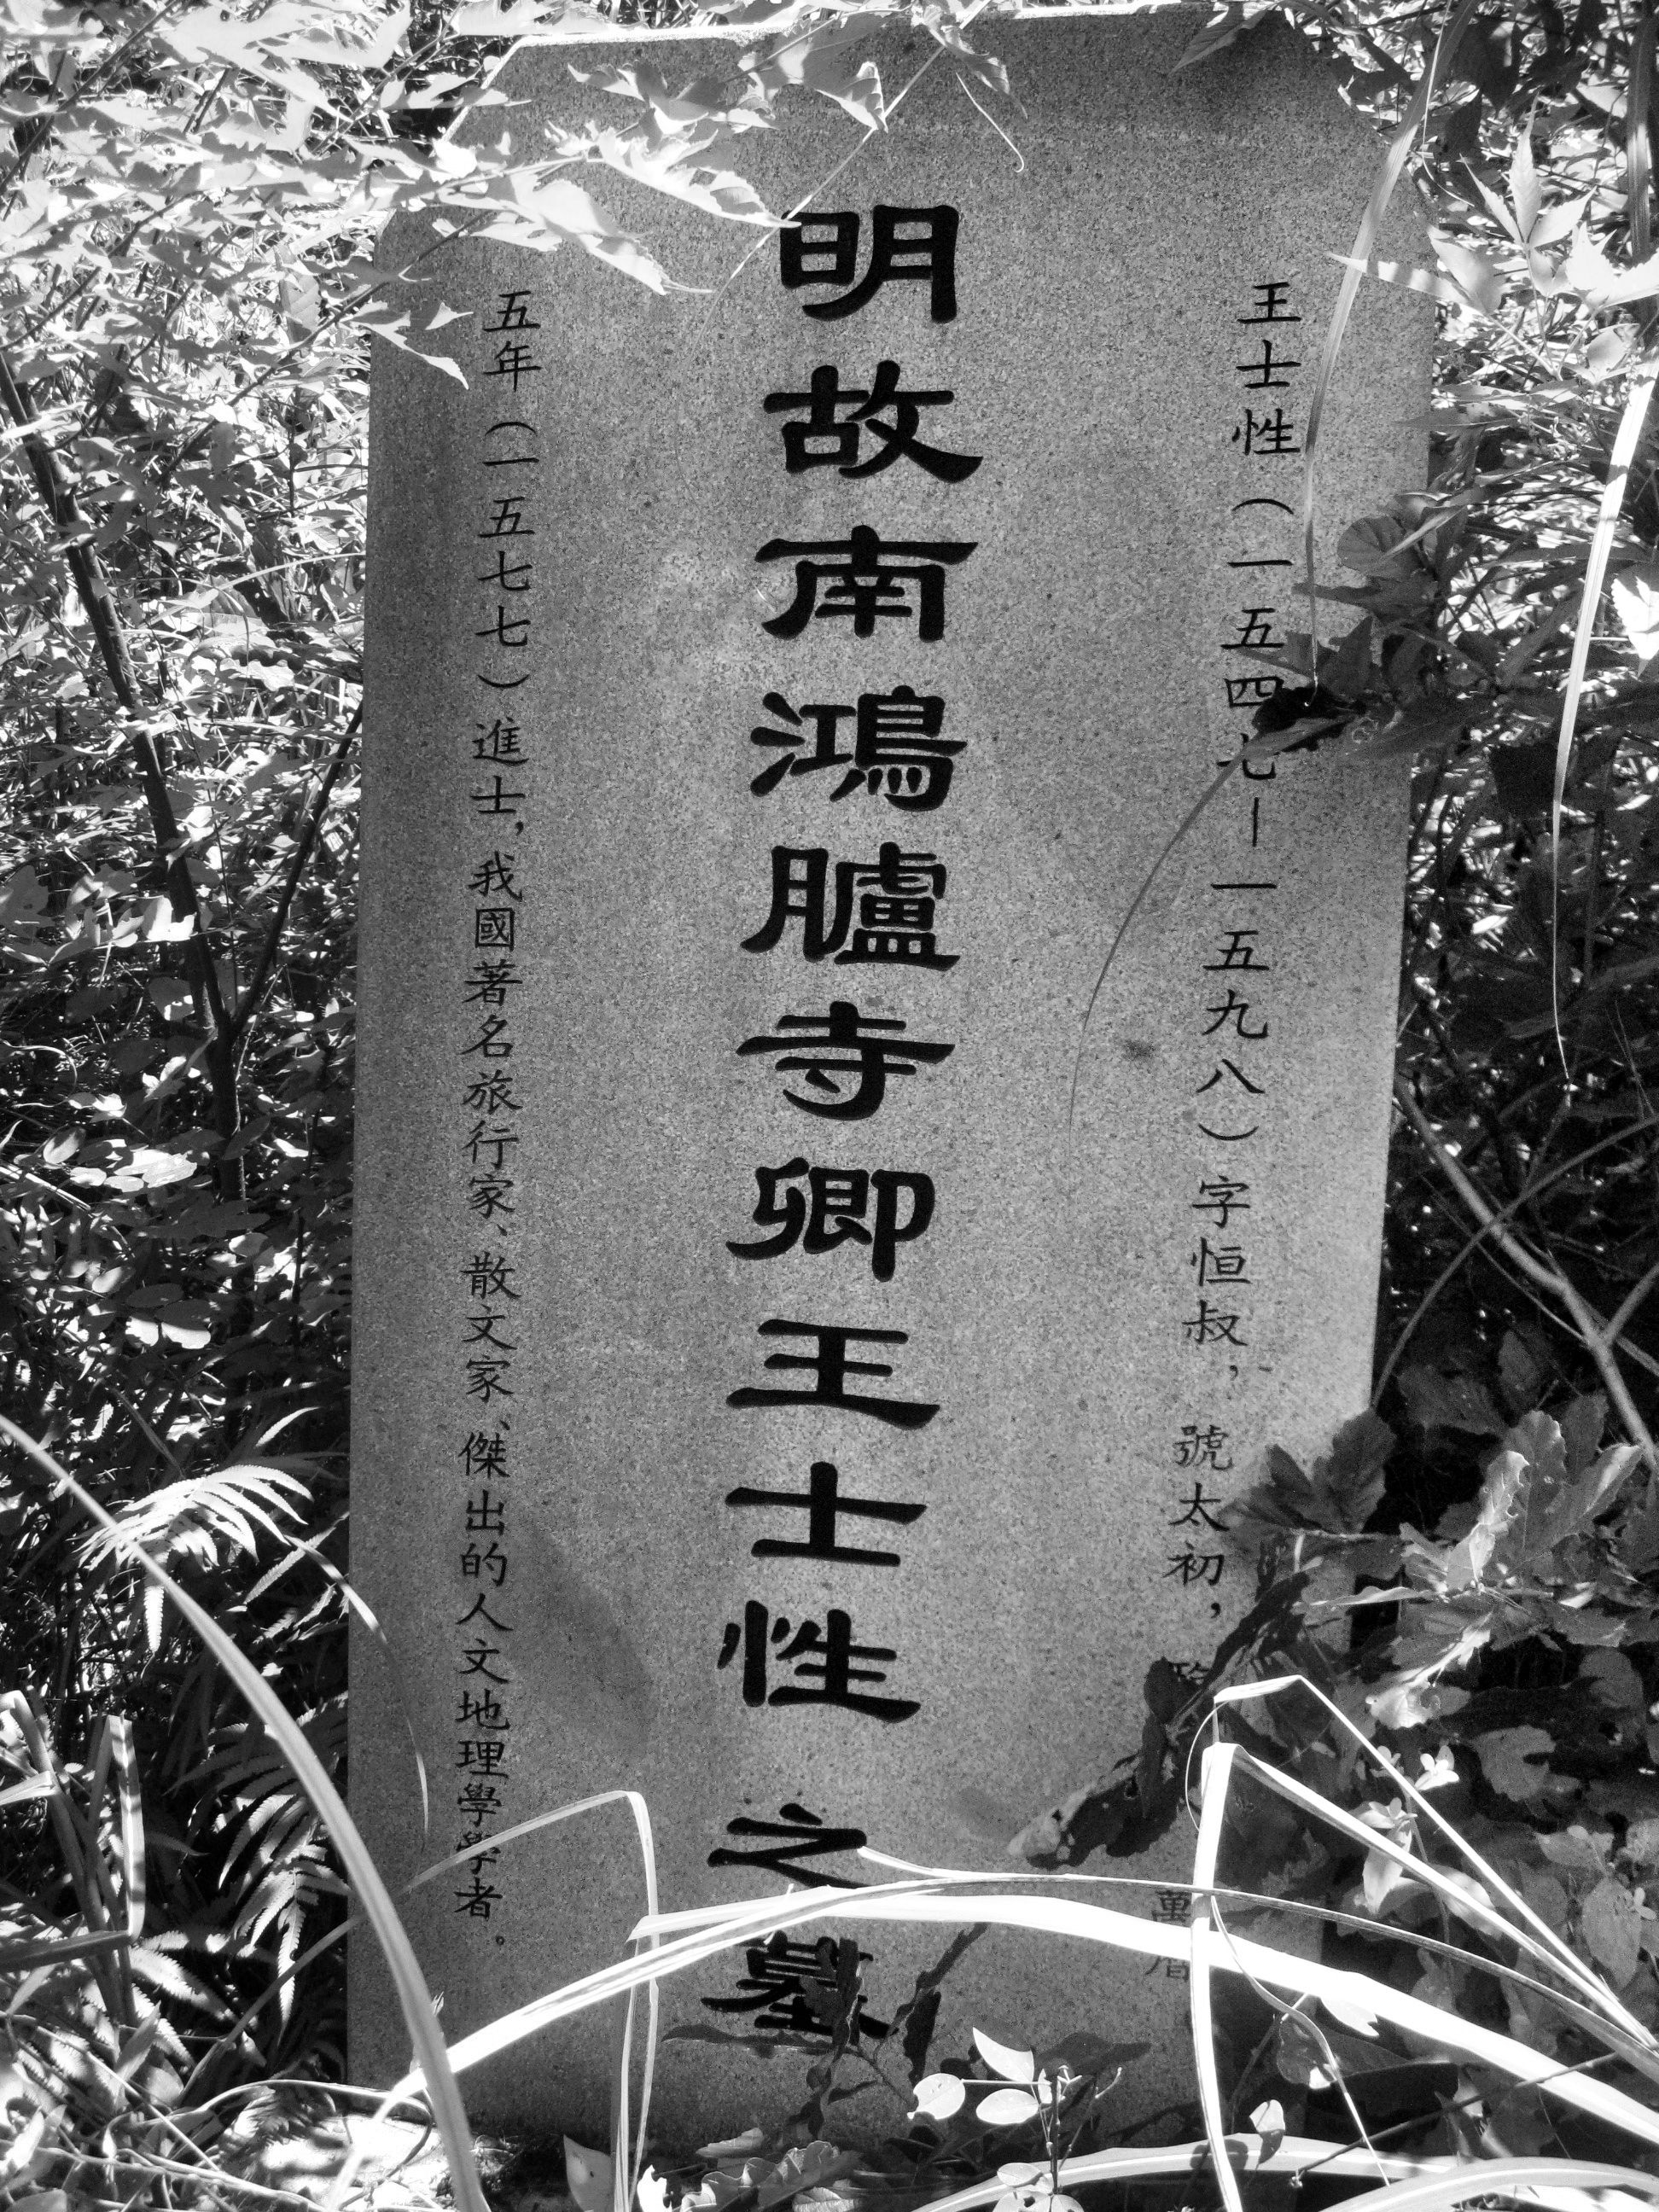 王士性（一五四七－一五九八）字恒叔，號太初，萬曆
明故南鴻臚寺卿王士性之墓
五年（一五七七）進士，我國著名旅行家、散文家、傑出的人文地理學學者。